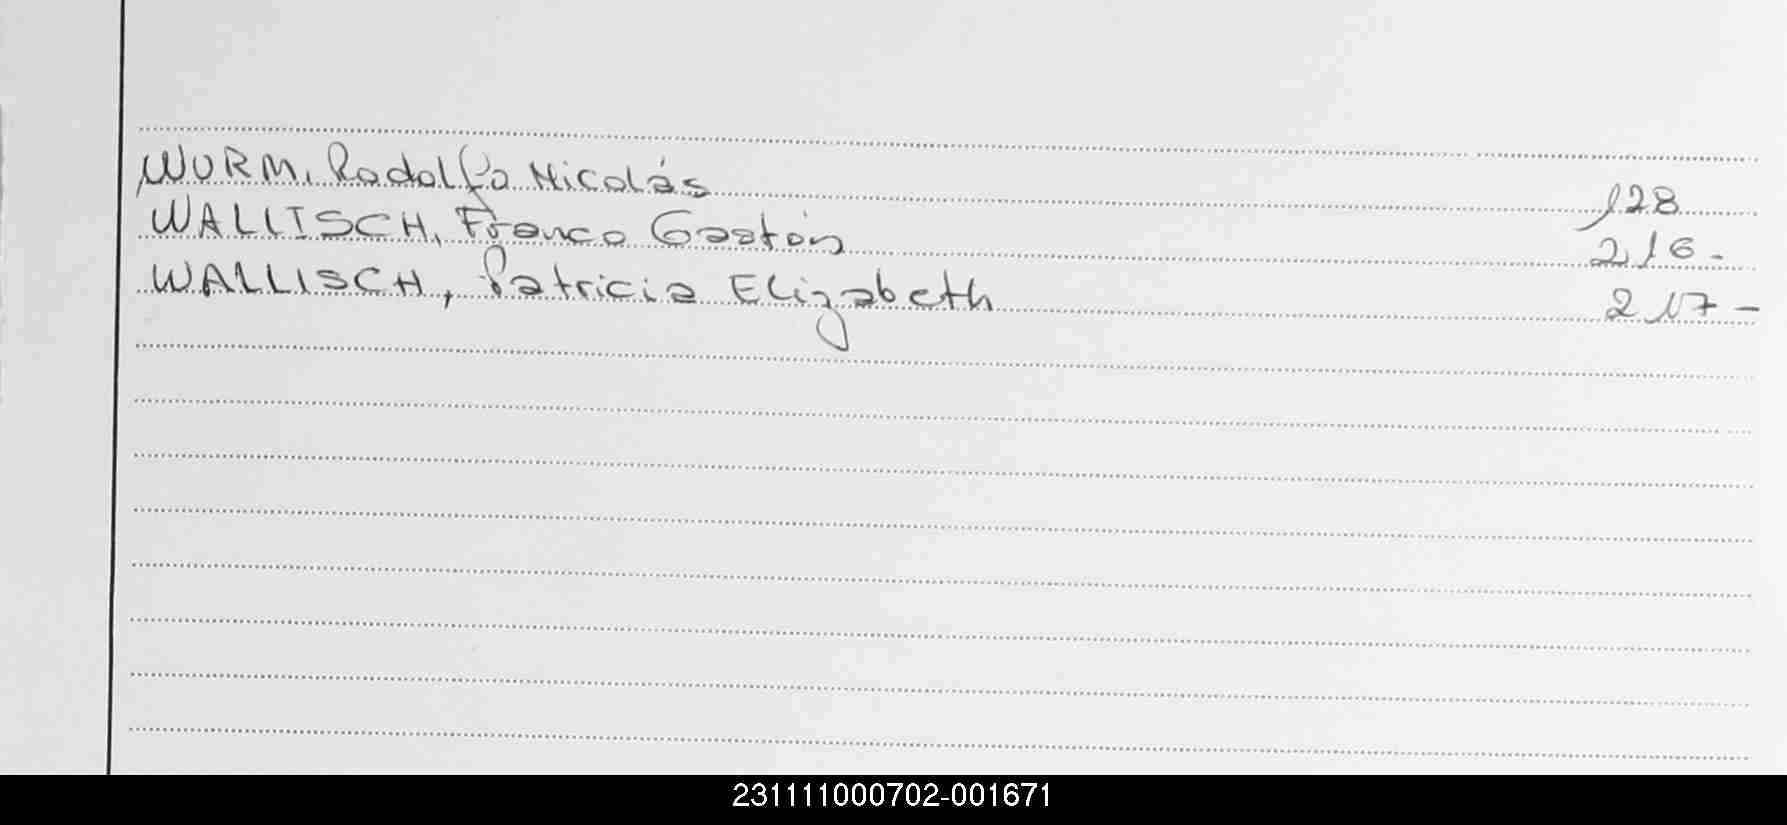 WURM, Rodolfo Nicolás 128
WALLISCH, Franco Gastón 216-
WALLISCH, Patricia Elizabeth 217-
231111000702-001671